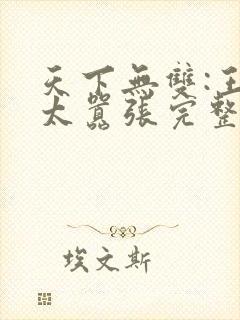 天下無雙:王
太囂張完整
埃文斯